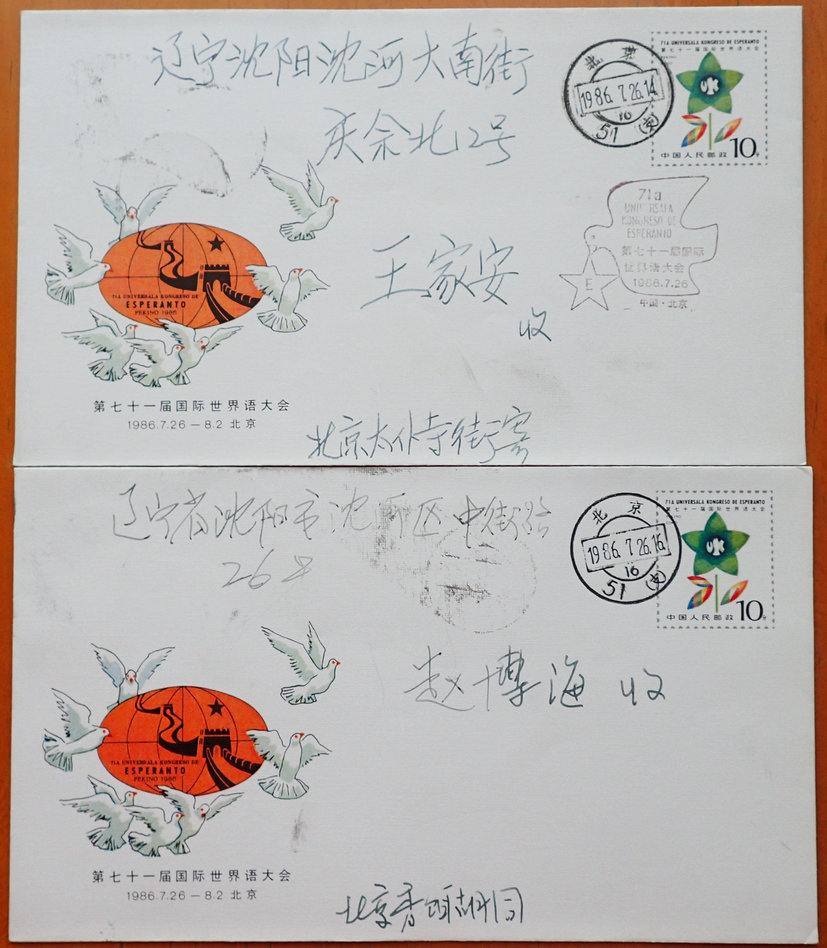 辽宁沈阳沈河大南街
庆余北12号
王家安
收
北京太仆寺街寄
71A UNIVERSALA KONGRESO DE ESPERANTO
第七十一届国际世界语大会
中国人民邮政 10分
北京
1986.7.26.14
16
51 (支)
71a
UNIVERSALA
KONGRESO DE
ESPERANTO
第七十一届国际
世界语大会
1986.7.26
中国·北京
E
71A UNIVERSALA KONGRESO DE
ESPERANTO
PEKINO 1986
第七十一届国际世界语大会
1986.7.26-8.2 北京
辽宁省沈阳市沈河区中街
268
赵博海 收
71A UNIVERSALA KONGRESO DE ESPERANTO
第七十一届国际世界语大会
中国人民邮政 10分
北京
1986.7.26.16
16
51 (支)
71A UNIVERSALA KONGRESO DE
ESPERANTO
PEKINO 1986
第七十一届国际世界语大会
1986.7.26-8.2 北京
北京 胡同